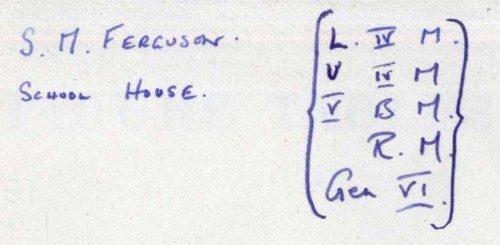 S. M. FERGUSON.
SCHOOL HOUSE.
L. IV M.
U IV M
V B M.
R. M.
Gen VI.